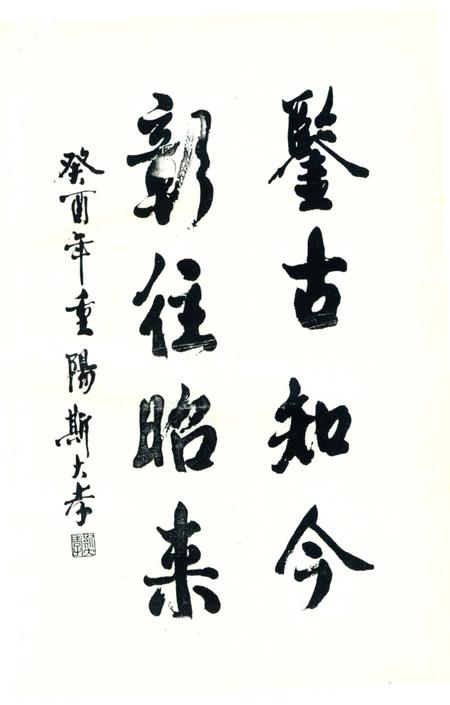 鑒古知今
彰往昭来
癸酉年重陽斯大孝